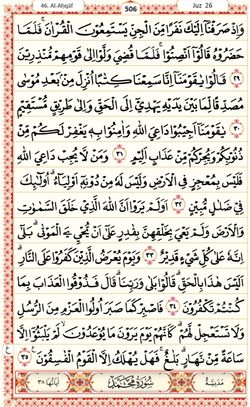 46. Al-Ahqáf 506 Juz 26
وَإِذْ صَرَفْنَآ إِلَيْكَ نَفَرًا مِّنَ ٱلْجِنِّ يَسْتَمِعُونَ ٱلْقُرْءَانَ فَلَمَّا
حَضَرُوهُ قَالُوٓا۟ أَنصِتُوا۟ ۖ فَلَمَّا قُضِىَ وَلَّوْا۟ إِلَىٰ قَوْمِهِم مُّنذِرِينَ
٢٩ قَالُوا۟ يَٰقَوْمَنَآ إِنَّا سَمِعْنَا كِتَٰبًا أُنزِلَ مِنۢ بَعْدِ مُوسَىٰ
مُصَدِّقًا لِّمَا بَيْنَ يَدَيْهِ يَهْدِىٓ إِلَى ٱلْحَقِّ وَإِلَىٰ طَرِيقٍ مُّسْتَقِيمٍ
٣٠ يَٰقَوْمَنَآ أَجِيبُوا۟ دَاعِىَ ٱللَّهِ وَءَامِنُوا۟ بِهِۦ يَغْفِرْ لَكُم مِّن
ذُنُوبِكُمْ وَيُجِرْكُم مِّنْ عَذَابٍ أَلِيمٍ ٣١ وَمَن لَّا يُجِبْ دَاعِىَ ٱللَّهِ
فَلَيْسَ بِمُعْجِزٍ فِى ٱلْأَرْضِ وَلَيْسَ لَهُۥ مِن دُونِهِۦٓ أَوْلِيَآءُ ۚ أُو۟لَٰٓئِكَ
فِى ضَلَٰلٍ مُّبِينٍ ٣٢ أَوَلَمْ يَرَوْا۟ أَنَّ ٱللَّهَ ٱلَّذِى خَلَقَ ٱلسَّمَٰوَٰتِ
وَٱلْأَرْضَ وَلَمْ يَعْىَ بِخَلْقِهِنَّ بِقَٰدِرٍ عَلَىٰٓ أَن يُحْۦِىَ ٱلْمَوْتَىٰ ۚ بَلَىٰٓ
إِنَّهُۥ عَلَىٰ كُلِّ شَىْءٍ قَدِيرٌ ٣٣ وَيَوْمَ يُعْرَضُ ٱلَّذِينَ كَفَرُوا۟ عَلَى ٱلنَّارِ
أَلَيْسَ هَٰذَا بِٱلْحَقِّ ۖ قَالُوا۟ بَلَىٰ وَرَبِّنَا ۚ قَالَ فَذُوقُوا۟ ٱلْعَذَابَ بِمَا
كُنتُمْ تَكْفُرُونَ ٣٤ فَٱصْبِرْ كَمَا صَبَرَ أُو۟لُوا۟ ٱلْعَزْمِ مِنَ ٱلرُّسُلِ
وَلَا تَسْتَعْجِل لَّهُمْ ۚ كَأَنَّهُمْ يَوْمَ يَرَوْنَ مَا يُوعَدُونَ لَمْ يَلْبَثُوٓا۟ إِلَّا
سَاعَةً مِّن نَّهَارٍۭ ۚ بَلَٰغٌ ۚ فَهَلْ يُهْلَكُ إِلَّا ٱلْقَوْمُ ٱلْفَٰسِقُونَ ٣٥
ع
مدنية سورة محمد آياتها ٣٨